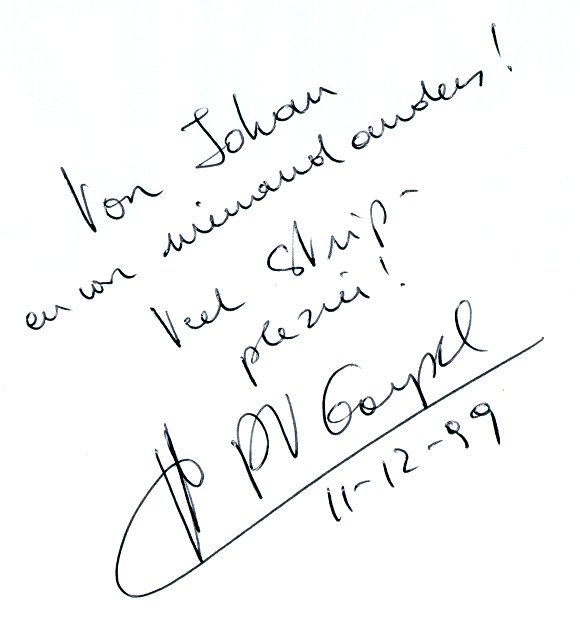 Voor Johan
en voor niemand anders!
Veel strip-
plezier!
PV Gompel
11-12-99